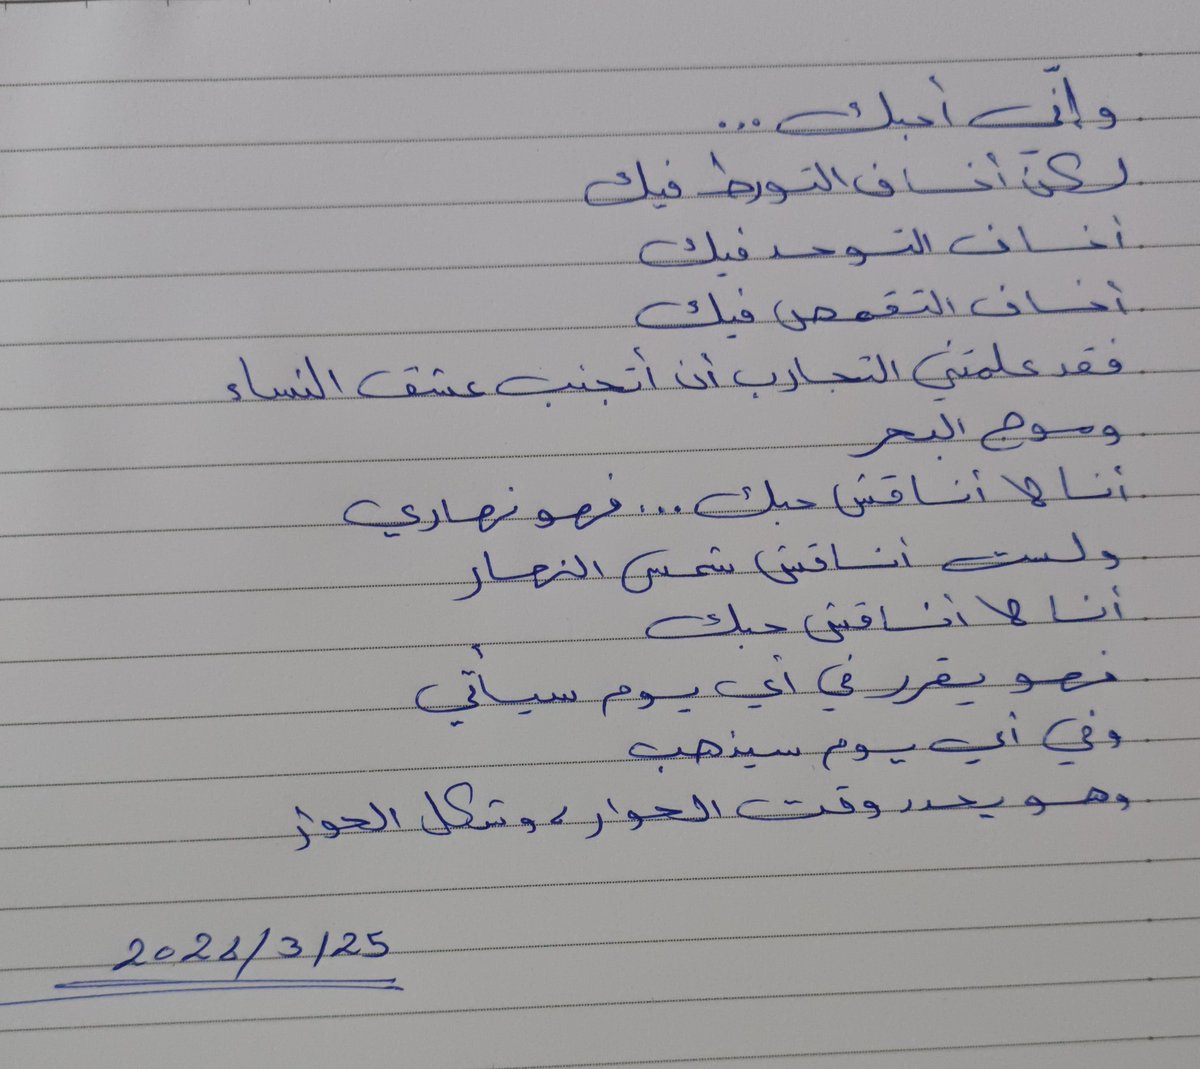 وإنّي أحبك ...
لكنّ أخاف التورط فيك
أخاف التوحد فيك
أخاف التقمص فيك
فقد علمتني التجارب أن أتجنب عشق النساء
وموج البحر
أنا لا أناقش حبك ... فهو نهاري
ولست أناقش شمس النهار
أنا لا أناقش حبك
فهو يقرر في أي يوم سيأتي
وفي أي يوم سيذهب
وهو يحدد وقت الحوار، وشكل الحوار
/3/25